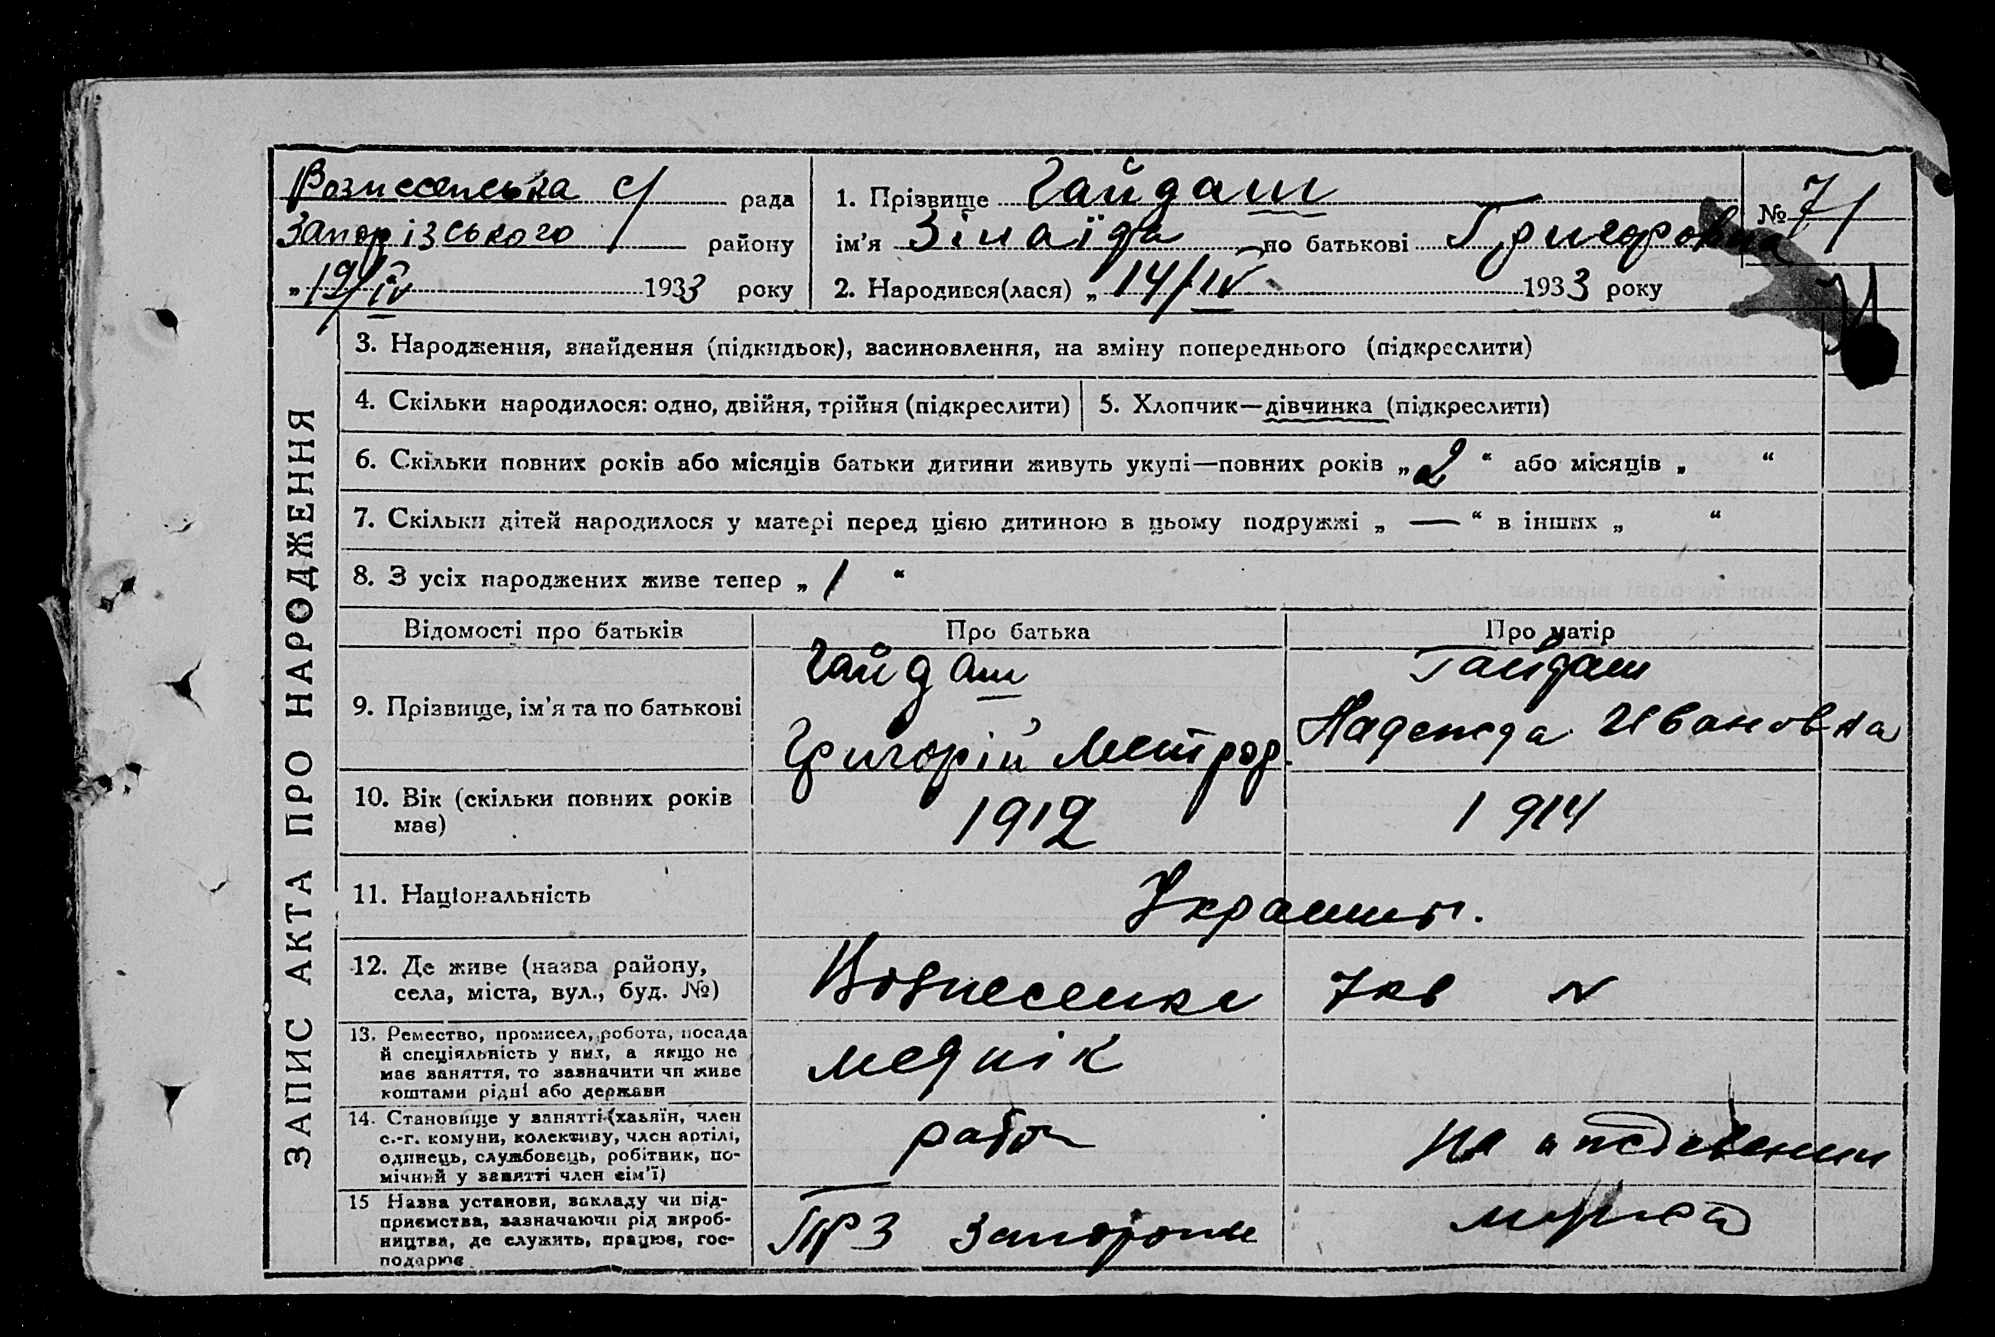 Вознесенська с/ рада
Запорізського району
„19/IV 1933 року
1. Прізвище Гайдаш
ім'я Зінаїда по батькові Григоровна
2. Народився(лася) „14/IV 1933 року
№ 71
71
ЗАПИС АКТА ПРО НАРОДЖЕННЯ
3. Народження, знайдення (підкидьок), засиновлення, на зміну попереднього (підкреслити)
4. Скільки народилося: одно, двійня, трійня (підкреслити)
5. Хлопчик—дівчинка (підкреслити)
6. Скільки повних років або місяців батьки дитини живуть укупі—повних років „2“ або місяців „ “
7. Скільки дітей народилося у матері перед цією дитиною в цьому подружжі „—“ в інших „ “
8. З усіх народжених живе тепер „1“
Відомості про батьків Про батька Про матір
9. Прізвище, ім'я та по батькові
Гайдаш
Григорій Митроф.
Гайдаш
Надежда Ивановна
10. Вік (скільки повних років
має)
1912
1914
11. Національність
Украинцы.
12. Де живе (назва району,
села, міста, вул., буд. №)
Вознесенка 7 кв N
13. Ремество, промисел, робота, посада
й спеціяльність у них, а якщо не
має заняття, то зазначити чи живе
коштами рідні або держави
меднік
14. Становище у занятті (хазяїн, член
с.-г. комуни, колективу, член артілі,
одинець, службовець, робітник, по-
мічний у занятті член сім'ї)
рабоч
на иждевении
15 Назва установи, закладу чи під-
приємства, зазначаючи рід вироб-
ництва, де служить, працює, гос-
подарює
ПРЗ Запорожье
мужа